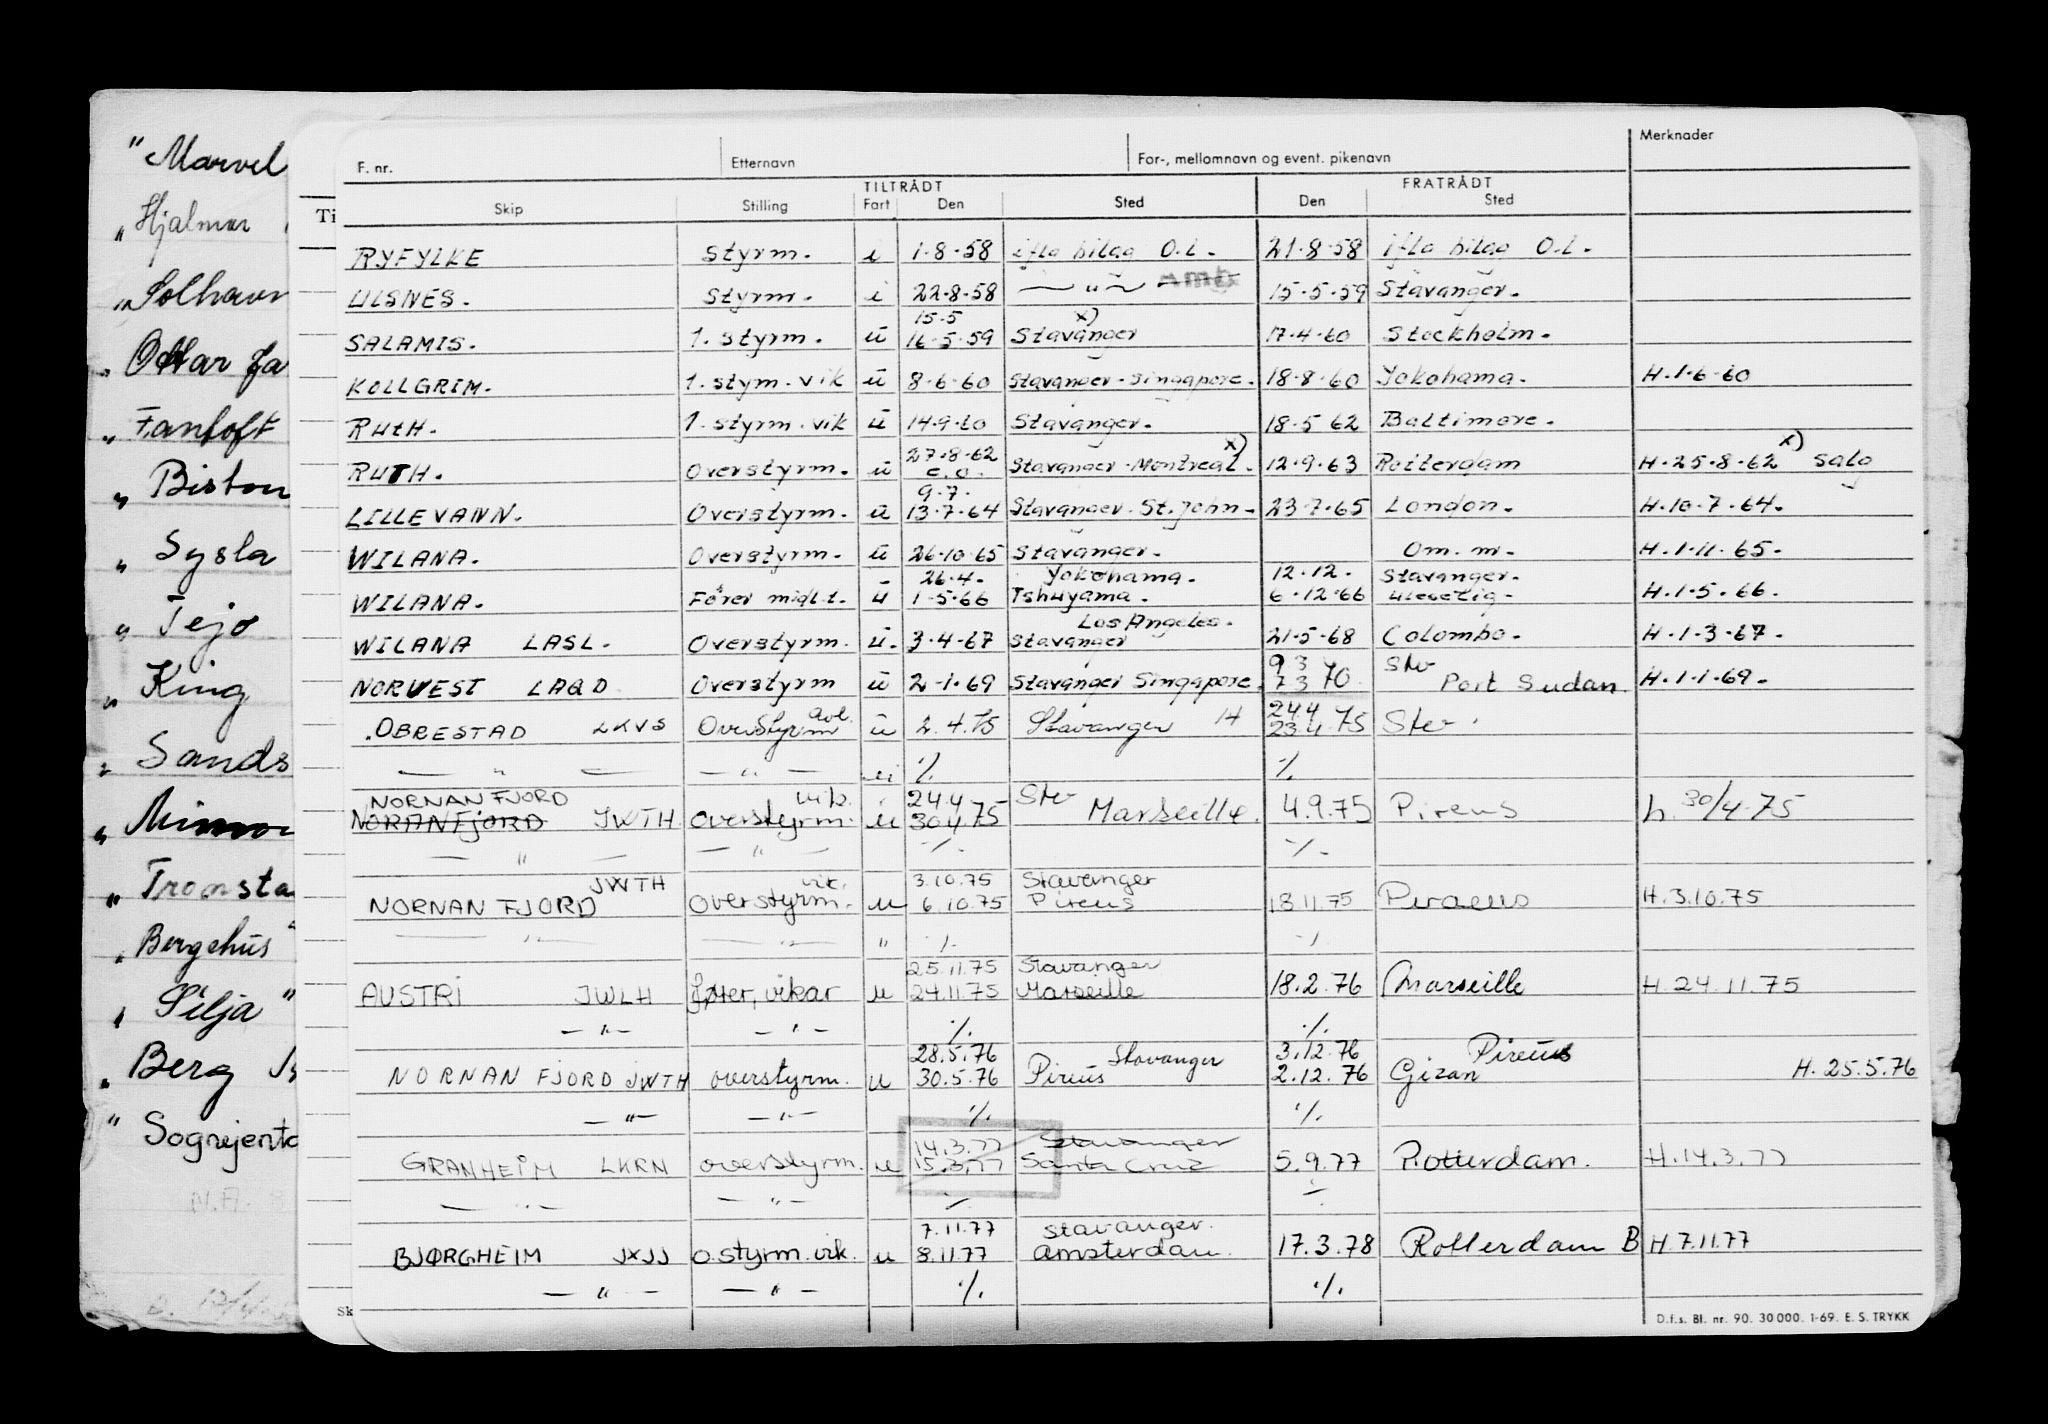 "Marvel
„Hjalmar
„Solhavn
„Ottar Ja
„Fantoft
„Biston
„Sysla
„Tejo
„King
„Sands
„Tromsta
„Bergehus"
„Silja"
„Berg
"Sognejento
N.A.
Ti
Sk
Merknader
F. nr. Etternavn For-, mellomnavn og event. pikenavn
TILTRÅDT FRATRÅDT
Skip Stilling Fart Den Sted Den Sted
RYFYLKE styrm. i 1-8-58 iflg bilag O.L. 21-8-58 iflg bilag O.L.
ULSNES. styrm. i 22-8-58 — " — 15-5-59 Stavanger.
15-5 x)
SALAMIS. 1. styrm. u 16-5-59 Stavanger 17-4-60 Stockholm.
KOLLGRIM. 1. stym. vik u 8-6-60 Stavanger-Singapore. 18-8-60 Yokohama. H.1-6-60
RUTH. 1. styrm. vik u 14-9-60 Stavanger. 18-5 62 Baltimore.
27-8-62 x) x)
RUTH. Overstyrm. u e.o. Stavanger-Montreal. 12-9-63 Rotterdam H.25-8-62 salg
9-7.
LILLEVANN. Overstyrm. u 13-7-64 Stavanger-St.John- 23-7-65 London. H.10-7-64.
WILANA. Overstyrm. u 26-10-65 Stavanger. Om. m. H.1-11-65.
26-4. Yokohama. 12-12. Stavanger.
WILANA. Fører midl.t. u 1-5-66 6-12-66 H.1-5-66.
Los Angeles.
WILANA LASL. Overstyrm. u. 3-4-67 Stavanger 21-5-68 Colombo. H.1-3-67.
9 3 Stv
NORVEST LAQD Overstyrm u 2-1-69 Stavanger Singapore. 7 3 70 Port Sudan. H.1-1-69.
avl. 24.4
OBRESTAD LKVS Overstyrm u 2.4.75 Stavanger H 23.4.75 Stv.
— " — — " — ./. ./.
NORNAN FJORD vik. 24.4 Stv
NORANFJORD JWTH overstyrm. u 30.4 75 Marseille. 4.9.75 Pireus h. 30/4-75
— " — — " — ./. ./.
JWTH vik. 3.10.75 Stavanger
NORNAN FJORD overstyrm. u 6.10.75 Pireus 18.11.75 Piraeus H.3.10.75
— " — — " — " ./. ./.
25.11.75 Stavanger
AUSTRI JWLH fører, vikar u 24.11.75 Marseille 18.2.76 Marseille H.24.11.75
— " — — " — ./. ./.
28.5.76 Stavanger 3.12.76 Pireus
NORNAN FJORD JWTH overstyrm. u 30.5.76 Pireus 2.12.76 Gizan H. 25.5.76
— " — — " — ./. ./.
14.3.77 Stavanger
GRANHEIM LKRN overstyrm. u 15.3.77 Santa Cruz 5.9.77 Rotterdam. H.14.3.77
— " — — " — ./. ./.
7.11.77 Stavanger.
BJØRGHEIM JXJJ o.styrm. vik. u 8.11.77 Amsterdam. 17.3.78 Rotterdam B H.7.11.77
— " — — " — ./. ./.
D.f.s. Bl. nr. 90. 30000. 1-69. E. S. TRYKK